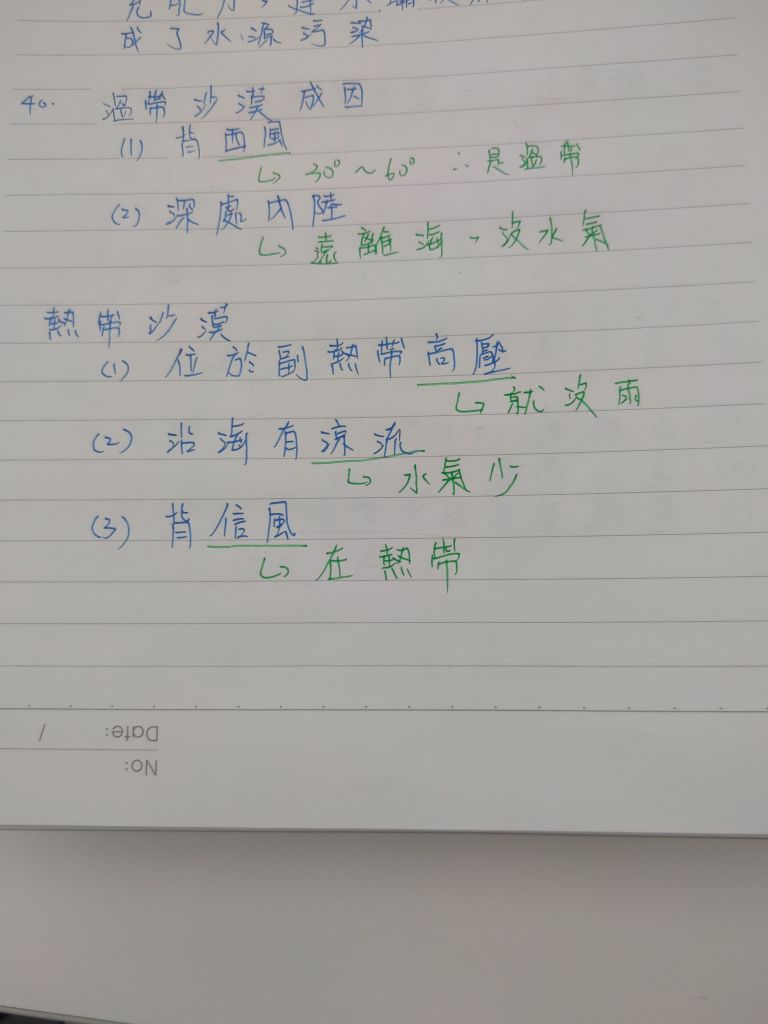 成了水源污染
40. 溫帶沙漠成因
(1) 背西風
↳ 30° ~ 60° ∴是溫帶
(2) 深處內陸
↳ 遠離海、沒水氣
熱帶沙漠
(1) 位於副熱帶高壓
↳ 就沒雨
(2) 沿海有涼流
↳ 水氣少
(3) 背信風
↳ 在熱帶
Date: /
No: